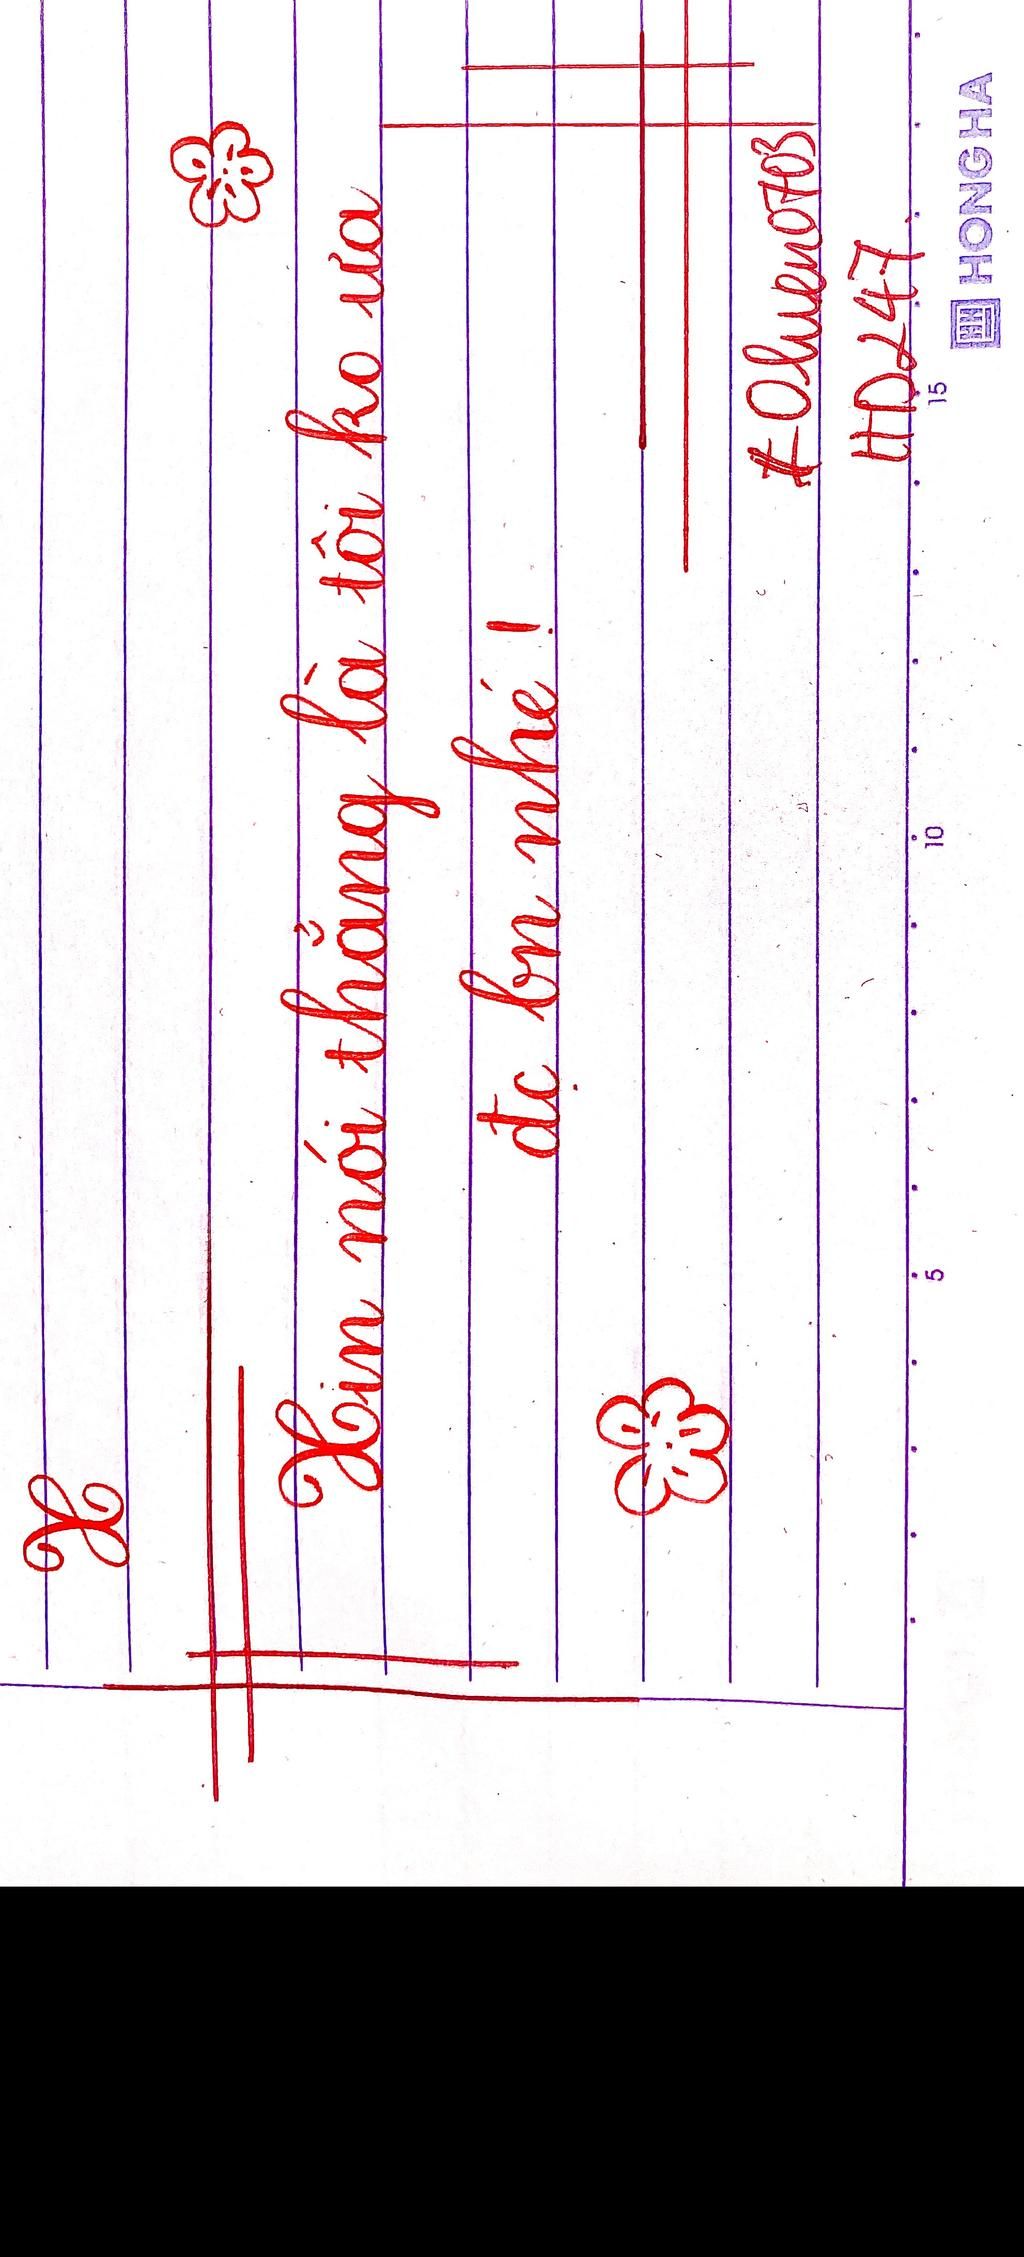 X
Xin nói thẳng là tôi ko ưa
đc bn nhé !
#Oluen0703
HD247
HONG HA
5 10 15